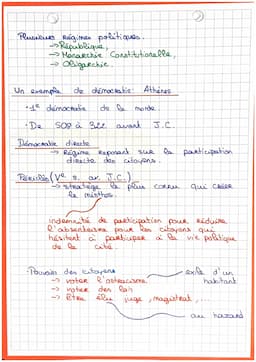 Plusieurs régimes politiques.
→ République,
→ Monarchie Constitutionnelle,
→ Oligarchie.
Un exemple de démocratie: Athènes
- 1e démocratie de le monde.
- De 508 à 322 avant J.C.
Démocratie directe
→ Régime reposant sur la participation
directe des citoyens.
Périclès (Ve s. av. J.C.)
→ stratège le plus connu qui créer
le misthos.
indemnité de participation pour réduire
l'absentéisme pour les citoyens qui
hésitent à participer à la vie politique
de la cité.
- Pouvoirs des citoyens
exil d'un
habitant
→ voter l'ostracisme
→ voter des lois
→ Être élu juge, magistrat,...
au hazard